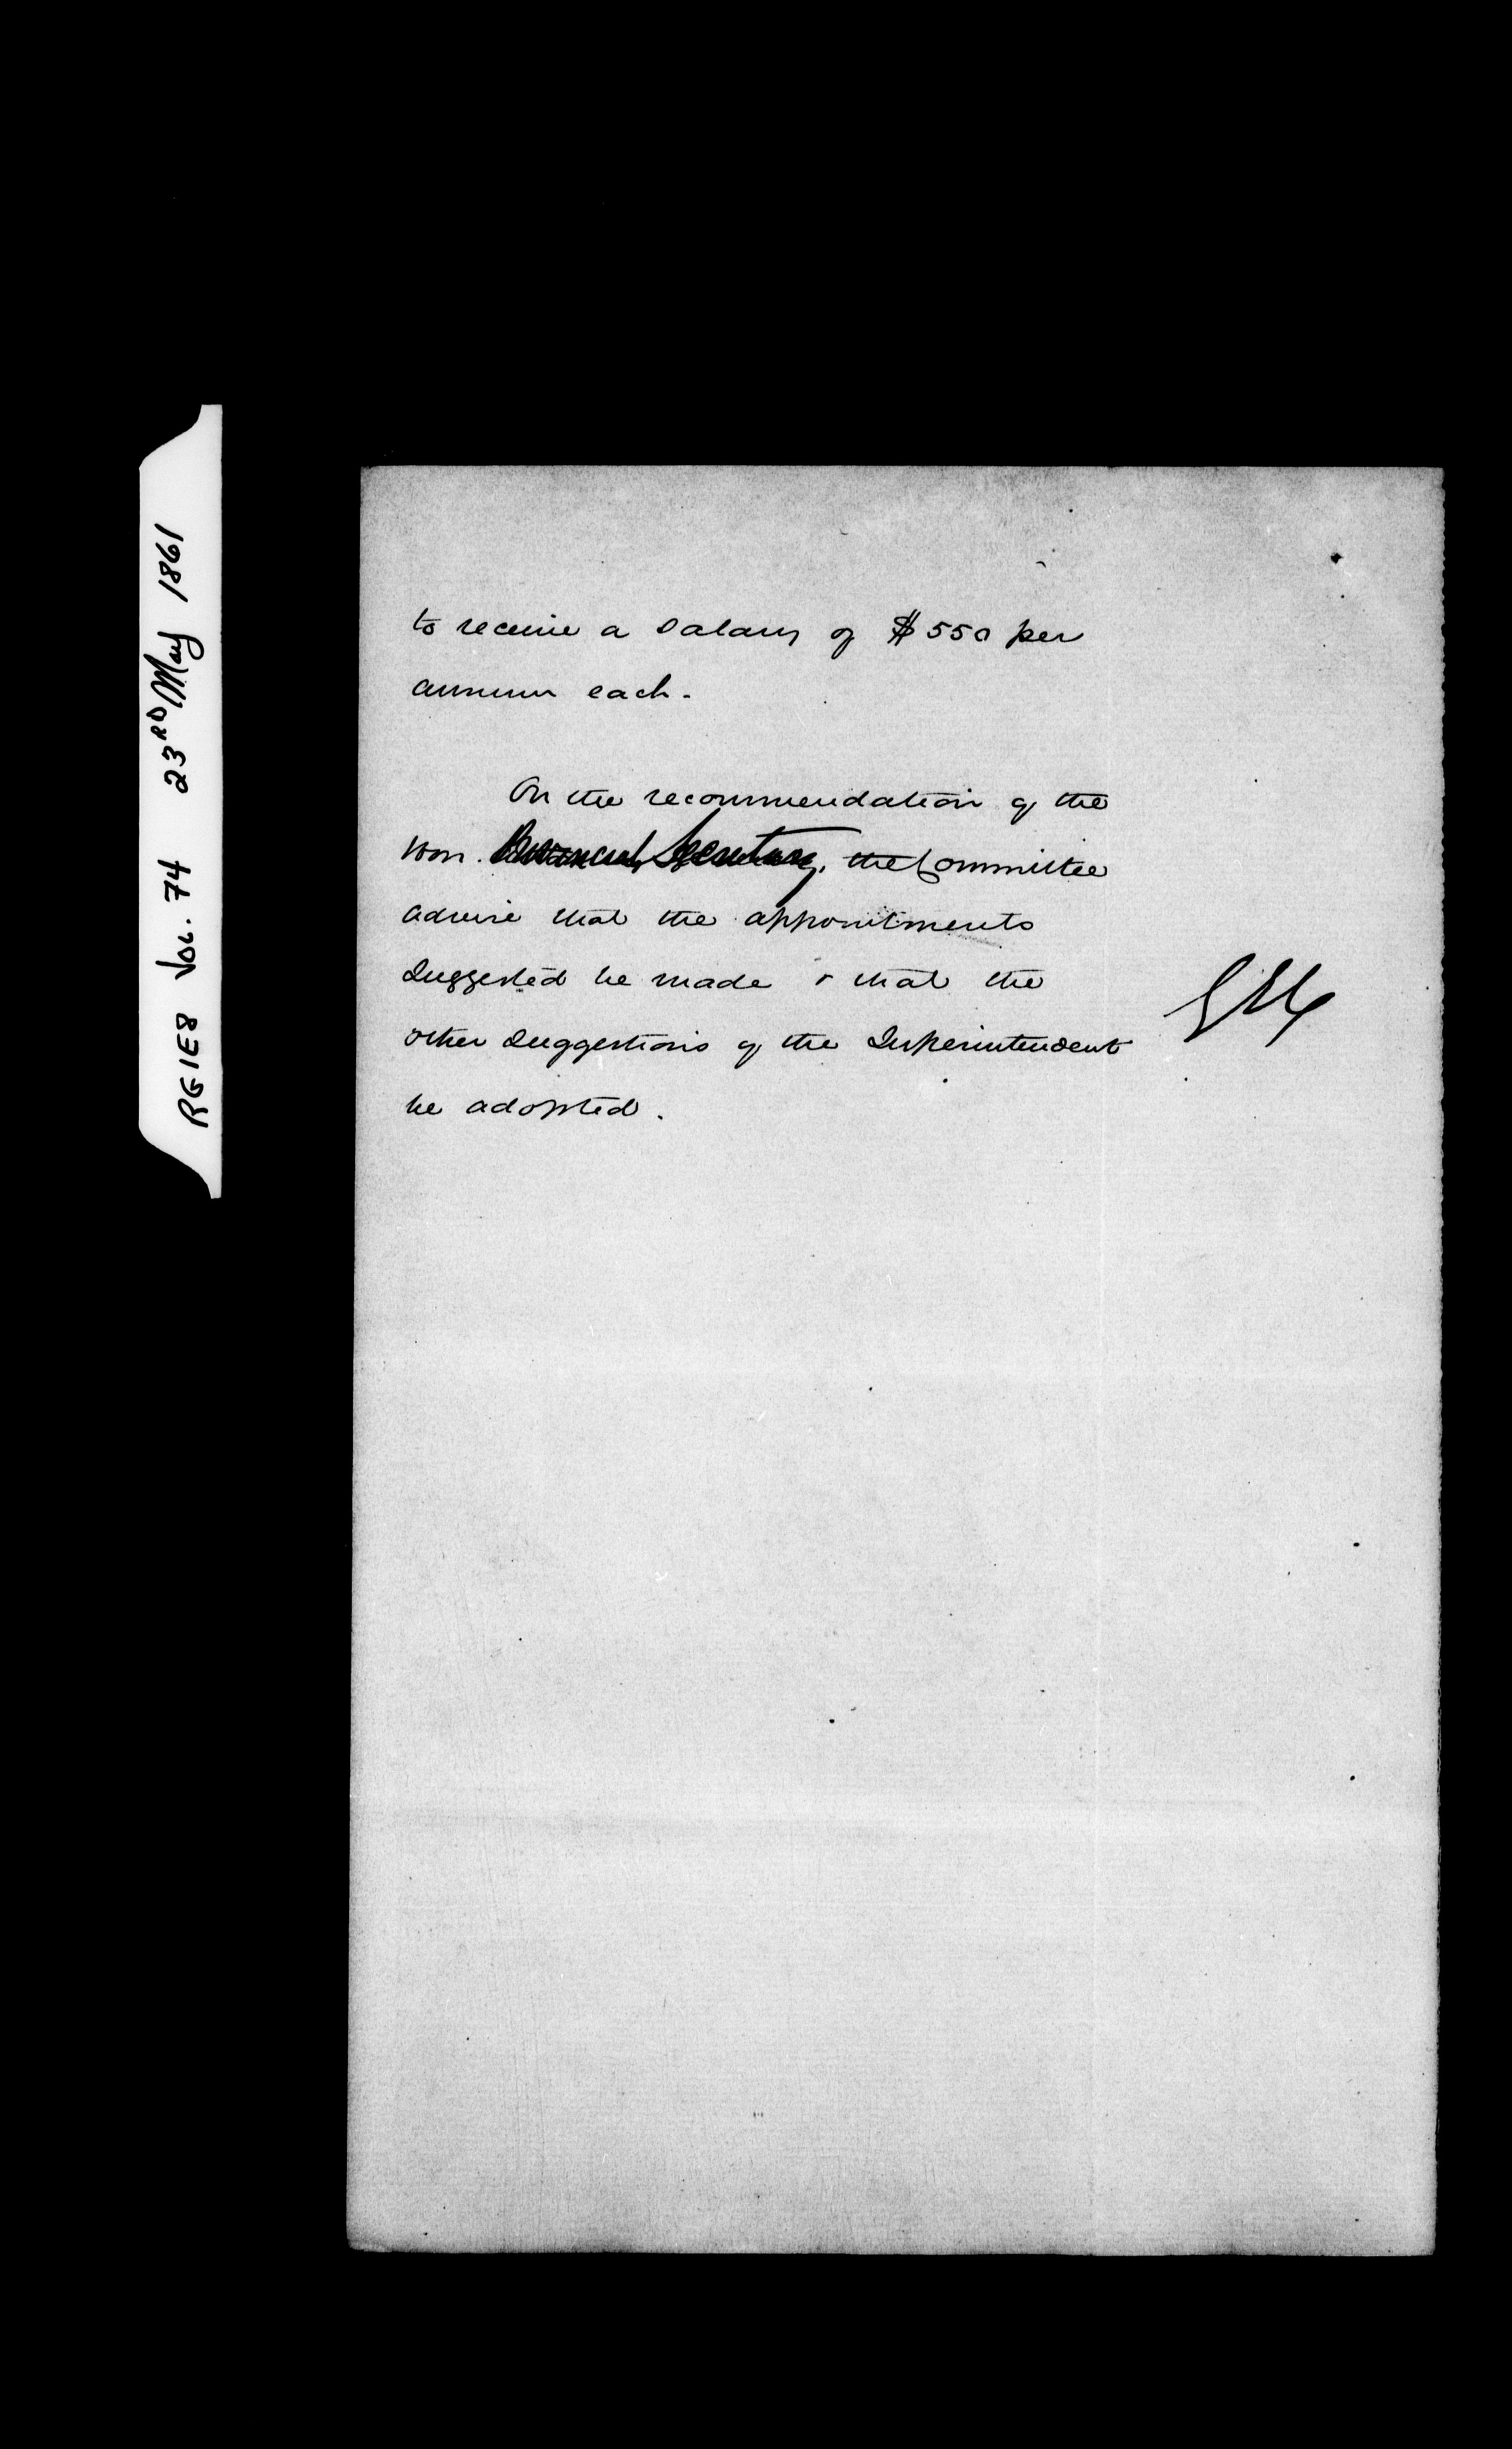 RG1E8 Vol. 74 23RD May 1861
to receive a Salary of $550 per
annum each.
On the recommendation of the
Hon. Provincial Secretary, the Committee
advise that the appointments
suggested be made & that the
other suggestions of the Superintendent
be adopted.